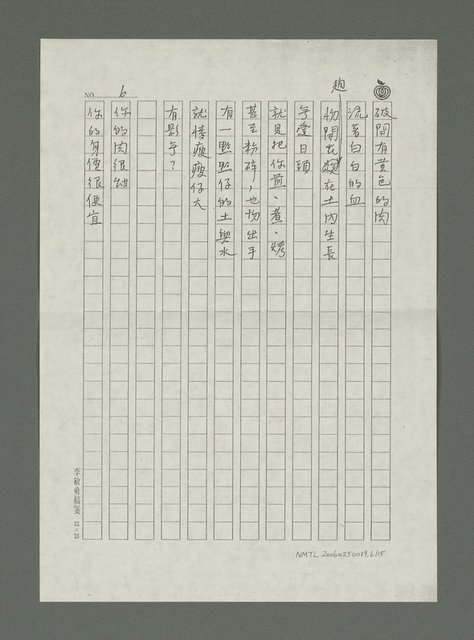 NO. 6
破開有黃色的肉
流著白白的血
趄
在土內生長
日頭
就是把你煎、煮、烤
甚至粉碎,也怀出手
有一點點仔的土與水
就會瘦瘦仔大
有影乎?
你的肉很
你的身價很便宜
李敏勇稿箋
NMTL 20060250019.6/15